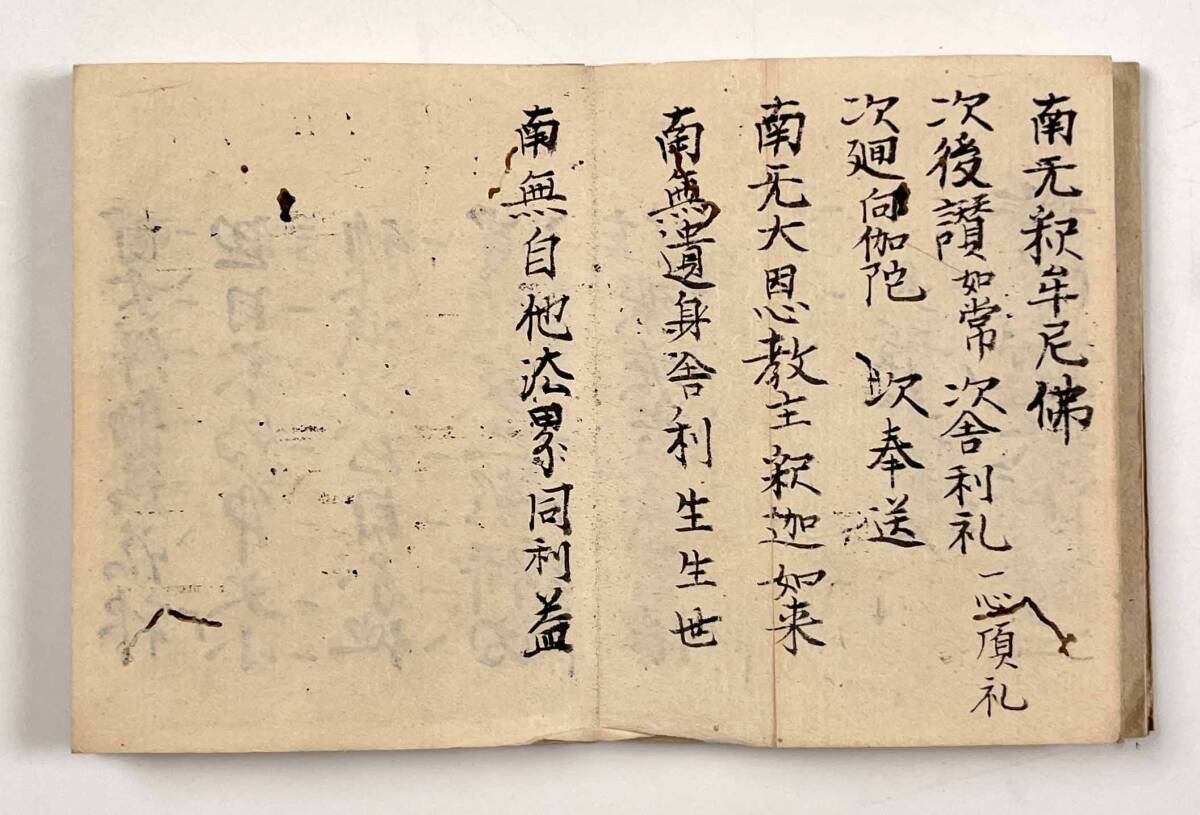 南无釈牟尼佛
次後讃如常 次舎利礼 一心頂礼
次廻向伽陀 次奉送
南无大恩教主釈迦如来
南無遺身舎利生生世
南無自他法界同利益